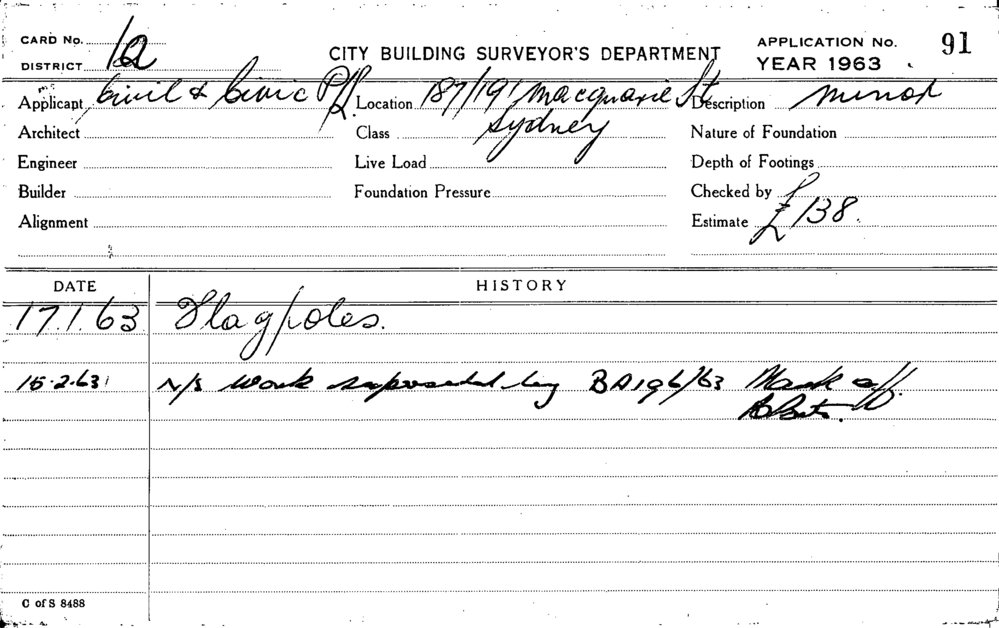 CARD No. 1a
CITY BUILDING SURVEYOR'S DEPARTMENT
APPLICATION No. 91
DISTRICT
YEAR 1963
Applicant Civil & Civic P/L. Location 187/191 Macquarie St Description Minor
Architect Class Sydney Nature of Foundation
Engineer Live Load Depth of Footings
Builder Foundation Pressure Checked by
Alignment Estimate £138.
DATE HISTORY
17.1.63 Flagpoles.
15.2.63 N/S Work superseded by BA196/63 Mark off.
C of S 8488